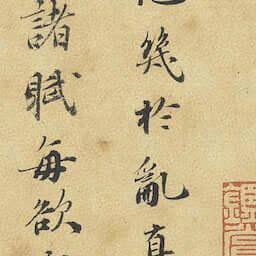 幾於亂真
諸賦每欲